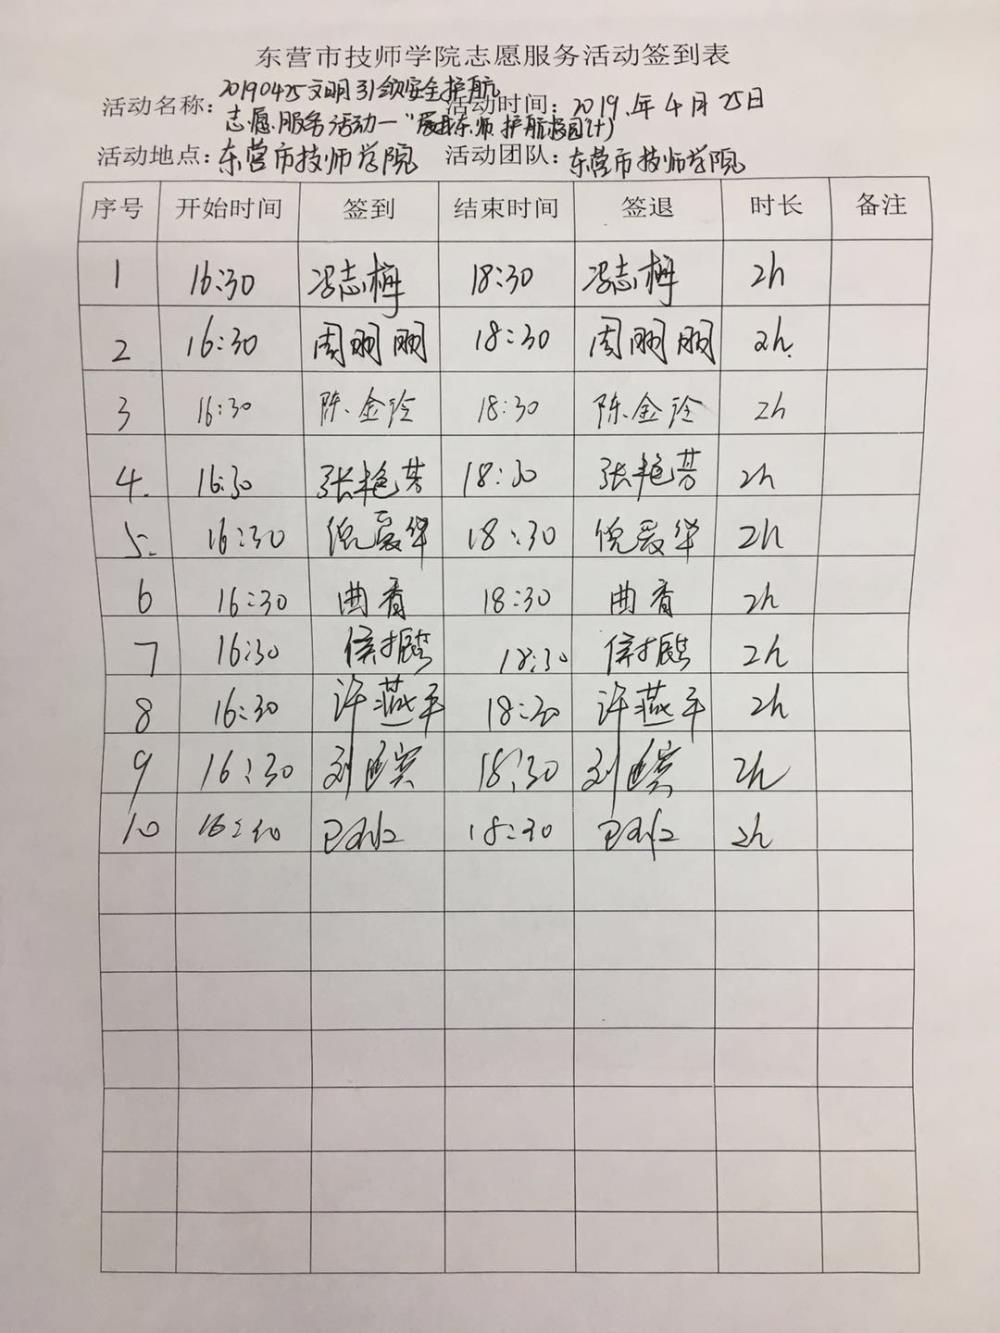 东营市技师学院志愿服务活动签到表
活动名称：20190425文明引领安全护航 活动时间：2019.年4月25日
志愿服务活动—"展我东师 护航校园(十)
活动地点：东营市技师学院 活动团队：东营市技师学院
序号 开始时间 签到 结束时间 签退 时长 备注
1 16:30 冯志梅 18:30 冯志梅 2h
2 16:30 周丽丽 18:30 周丽丽 2h.
3 16:30 陈金玲 18:30 陈金玲 2h
4. 16:30 张艳芳 18:30 张艳芳 2h
5. 16:30 倪爱华 18:30 倪爱华 2h
6 16:30 曲香 18:30 曲香 2h
7 16:30 18:30 2h
8 16:30 许燕平 18:30 许燕平 2h
9 16:30 刘 18:30 刘 2h
10 16:30 18:30 2h